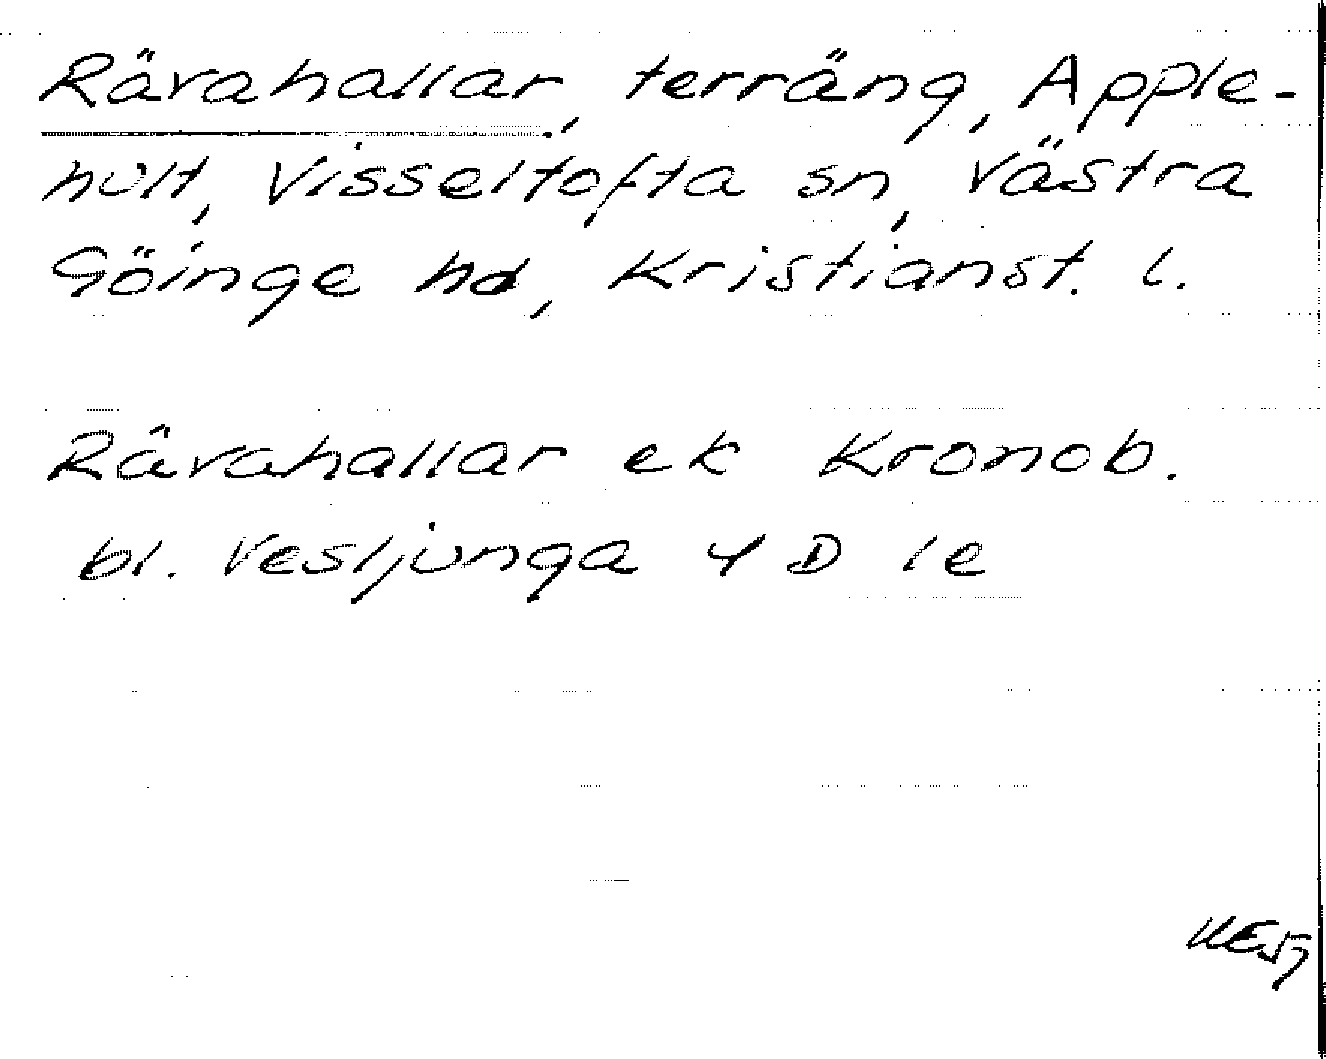 Rävahallar, terräng, Apple-
hult, Visseltofta sn, Västra
Göinge hd, Kristianst. l.
Rävahallar ek Kronob.
bl. Vesljunga 4 D 1e